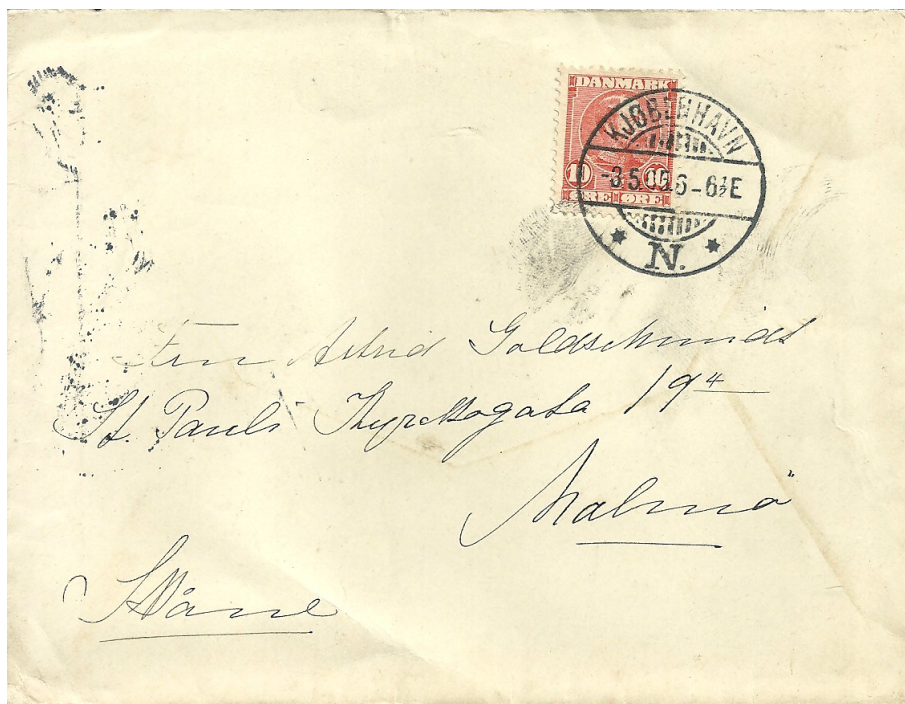 DANMARK
10 10
ØRE ØRE
KJØBENHAVN
-3.5.05.6-6½E
N.
Astrid Goldschmidt
St. Pauli Kyrkogata 19 4
Malmö
Skåne